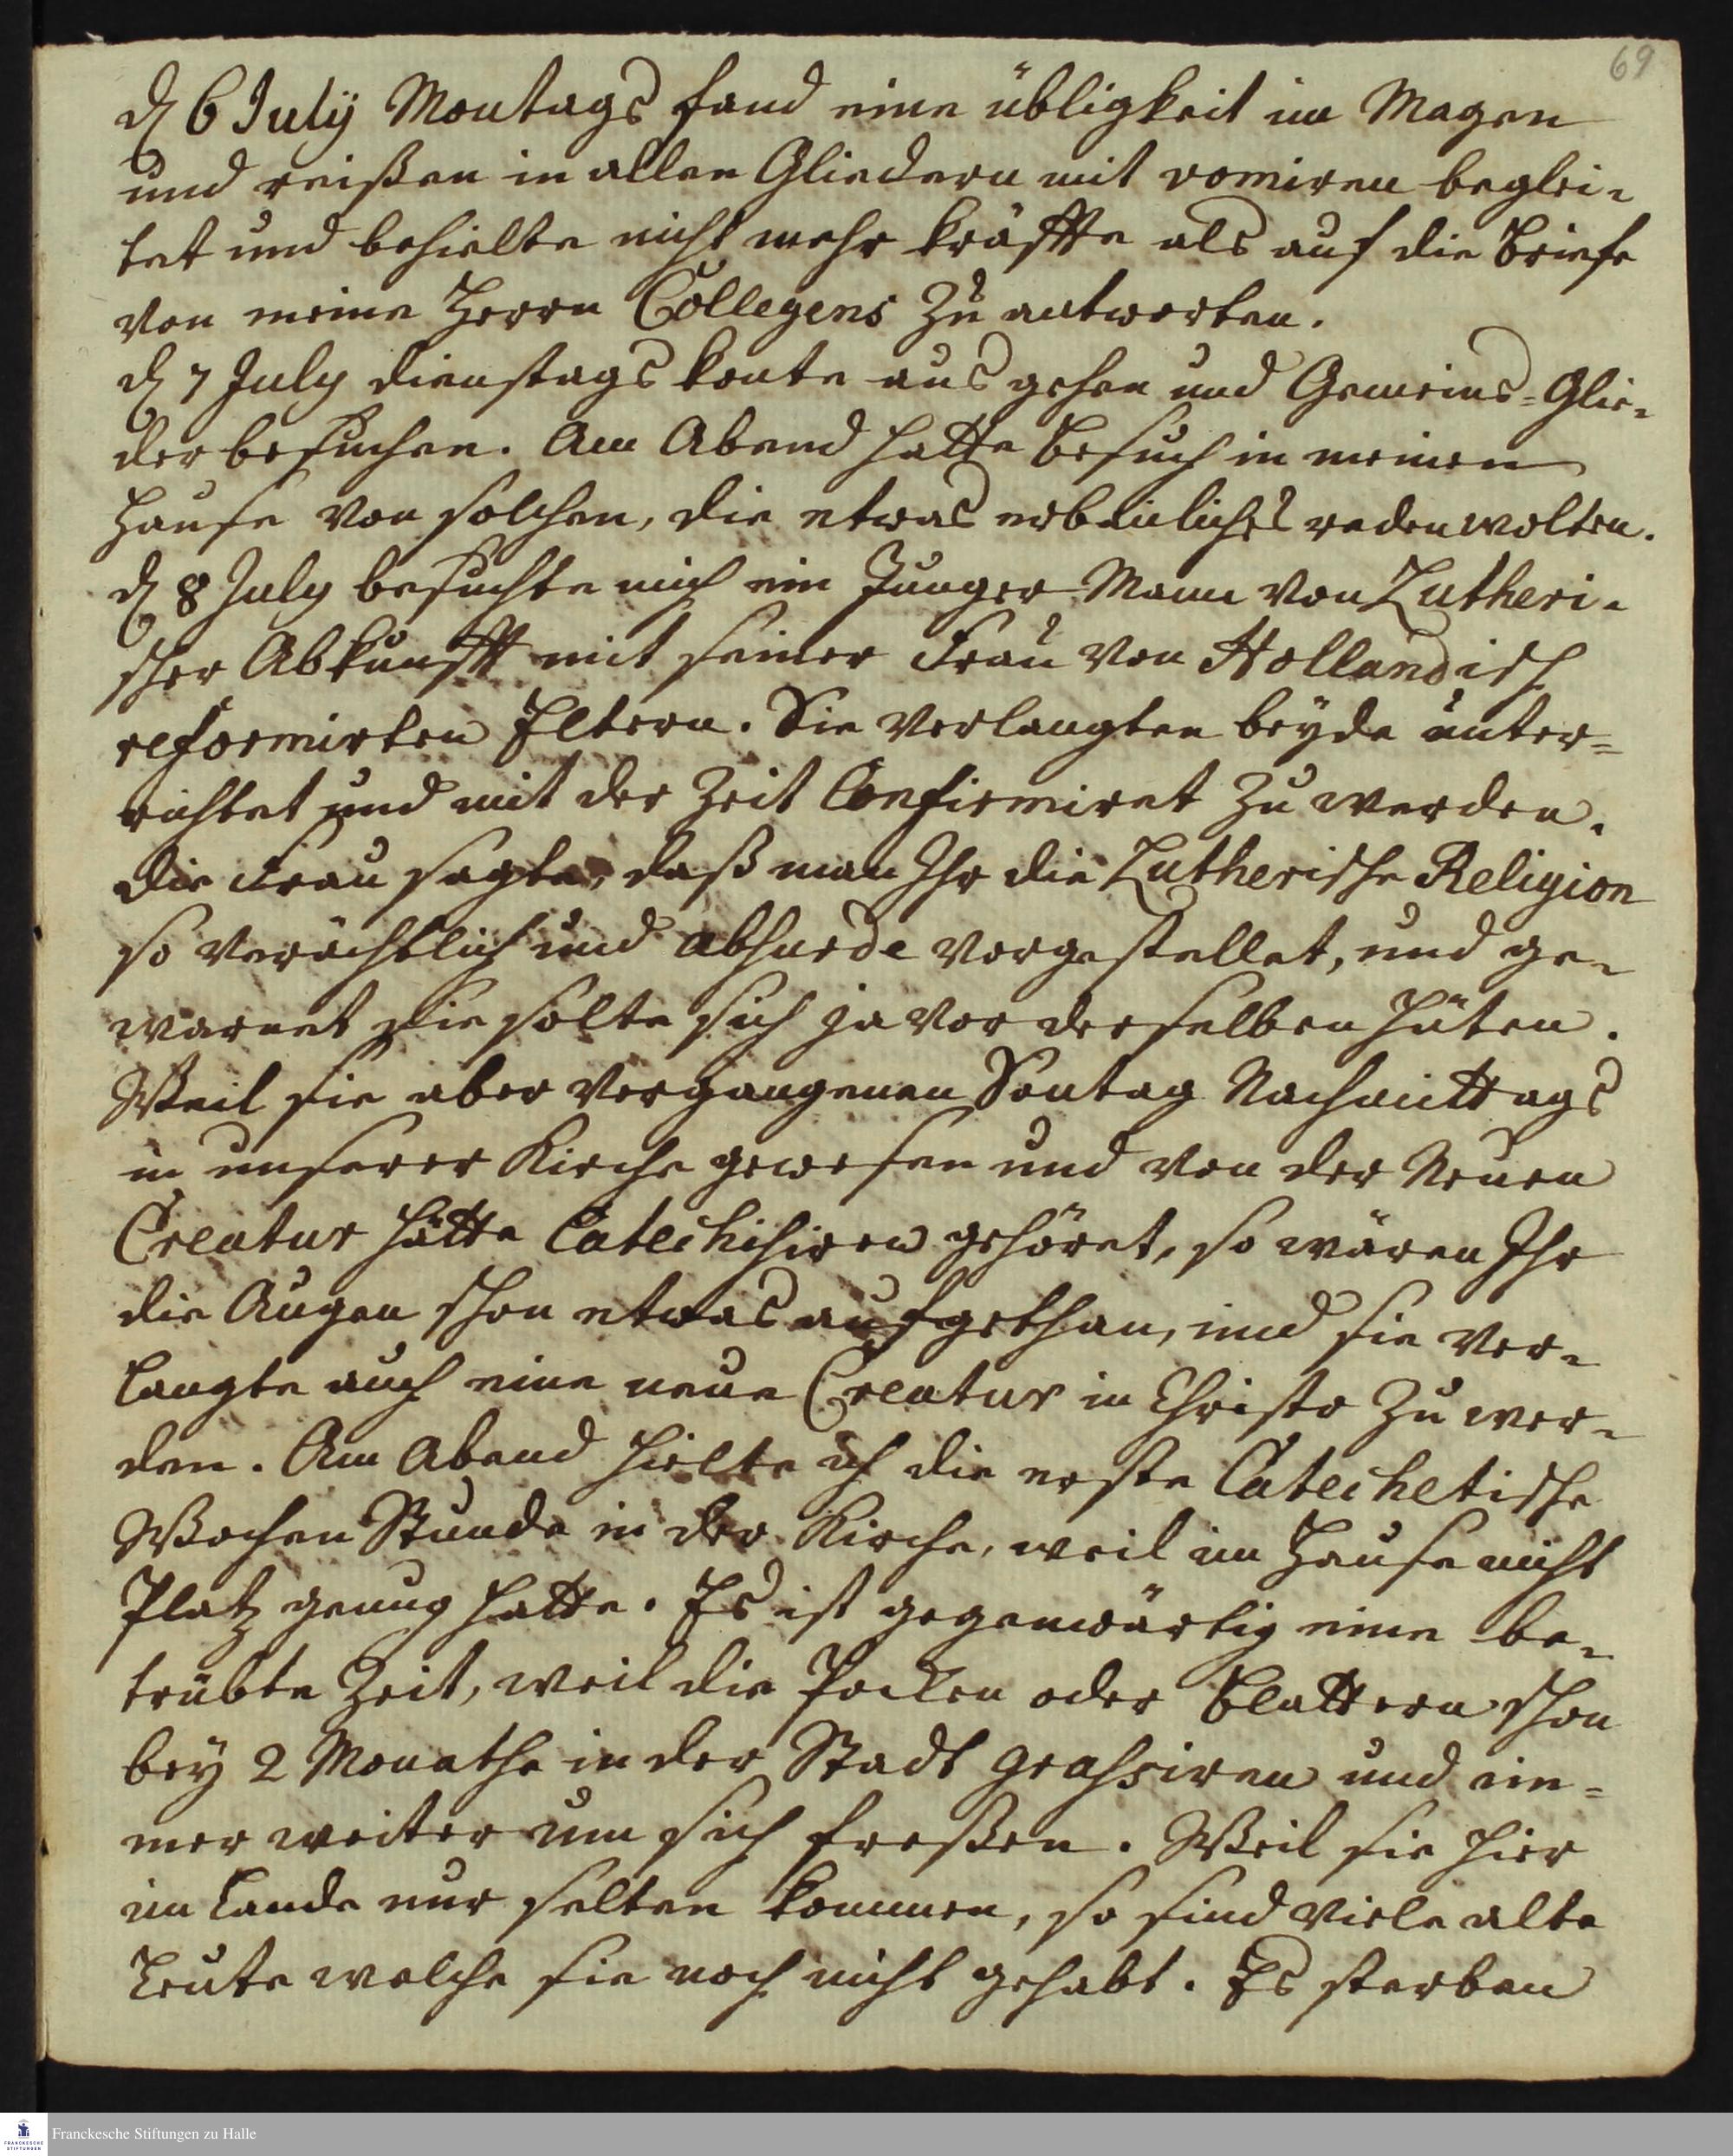 69
d 6 Julÿ Montags fand eine übligkeit im Magen
und reißen in allen Gliedern mit vomiren beglei-
tet und behielte nicht mehr kräffte als auf die Briefe
von meine Herrn Collegens zu antworten.
d 7 July dienstags konte aus gehen und Gemeins-Glie-
der besuchen. Am Abend hatte Besuch in meinem
Hause von solchen, die etwas erbauliches reden wolten.
d 8 July besuchte mich ein Junger Mann von Lutheri-
scher Abkunfft mit seiner Frau von Hollandisch
reformirten Eltern. Sie verlangten beyde unter=
richtet und mit der Zeit Confirmiret zu werden.
die Frau sagte, daß man Ihr die Lutherische Religion
so verächtlich und absurde vorgestellet, und ge-
warnet sie solte sich ja vor derselben hüten.
Weil sie aber vergangenen Sontag Nachmittags
in unserer Kirche gewesen und von der Neuen
Creatur hätte Catechisiren gehöret, so wären Ihr
die Augen schon etwas aufgethan, und sie ver-
langte auch eine neue Creatur in Christo zu wer-
den. Am Abend hielte ich die erste Catechetische
Wochen Stunde in der Kirche, weil im Hause nicht
Platz genug hatte. Es ist gegenwärtig eine be-
trübte Zeit, weil die Pocken oder Blattern schon
bey 2 Monathe in der Stadt grassiren und im=
mer weiter um sich freßen. Weil sie hier
im Lande nur selten kommen, so sind viele alte
Leute welche sie noch nicht gehabt. Es sterben
Franckesche Stiftungen zu Halle